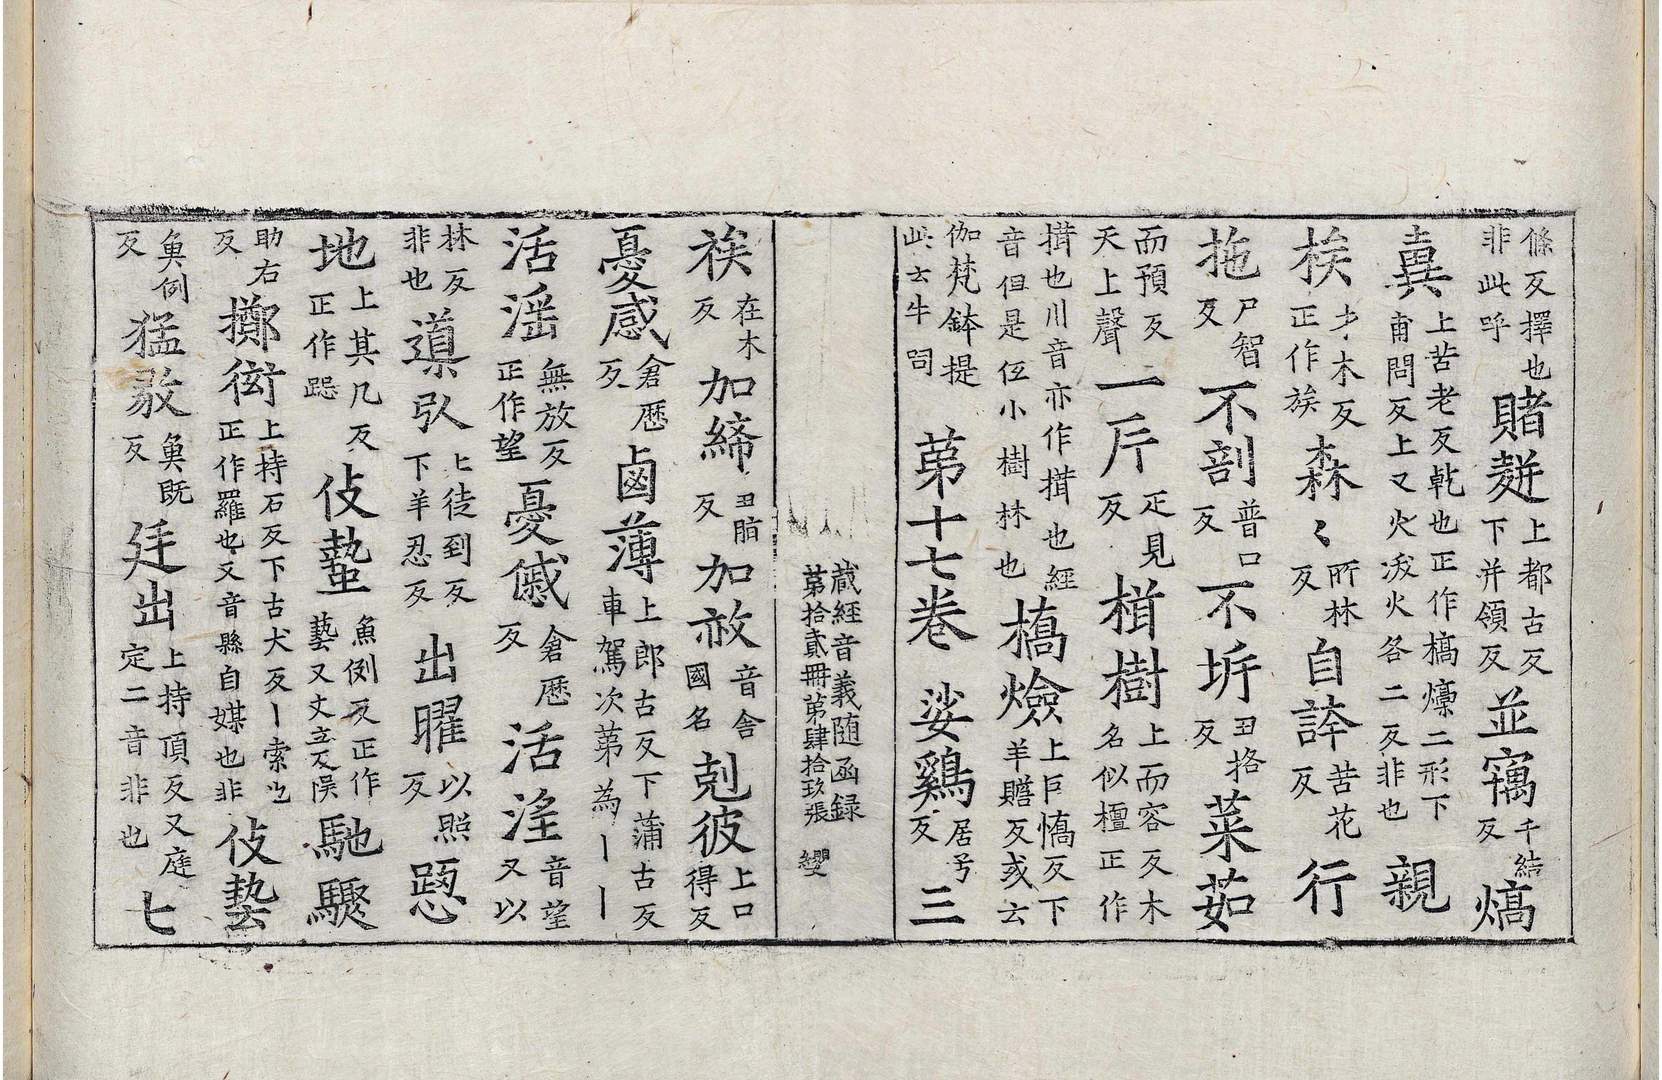 倐反擇也非此呼賭麩上都古反下并領反並竊千結反熇
上苦老反乹也正作槁㷖二形下甫問反上又火沃火各二反非也親
木反正作族森〻所林反自誇苦花反行
拖尸智反不剖普口反不坼丑挌反菜茹
而預反天上聲一斤疋見反楫樹上而容反木名似檀正作
揖也川音亦作揖也經音但是伍小樹林也檇㷿上巨憍反下羊贍反或云
伽梵鉢提此云牛呞第十七卷娑鷄居兮反三
蔵經音義随函録第拾貳冊第肆拾玖張 纓
在木反加締丑脂反加赦音舍國名剋彼上口得反
憂慼倉歴反鹵薄上郎古反下蒲古反車駕次第為丨丨
活滛無放反正作望憂慼倉歴反活淫音望又以
林反非也導引上徒到反下羊忍反出曜以照反
地上其几反正作跽伎蟄魚例反正作藝又丈立反悮馳驟
助右反擲衒上持石反下古犬反丨索也正作羅也又音縣自媒也非伎藝
魚例反猛毅魚既反廷出上持頂反又庭定二音非也七